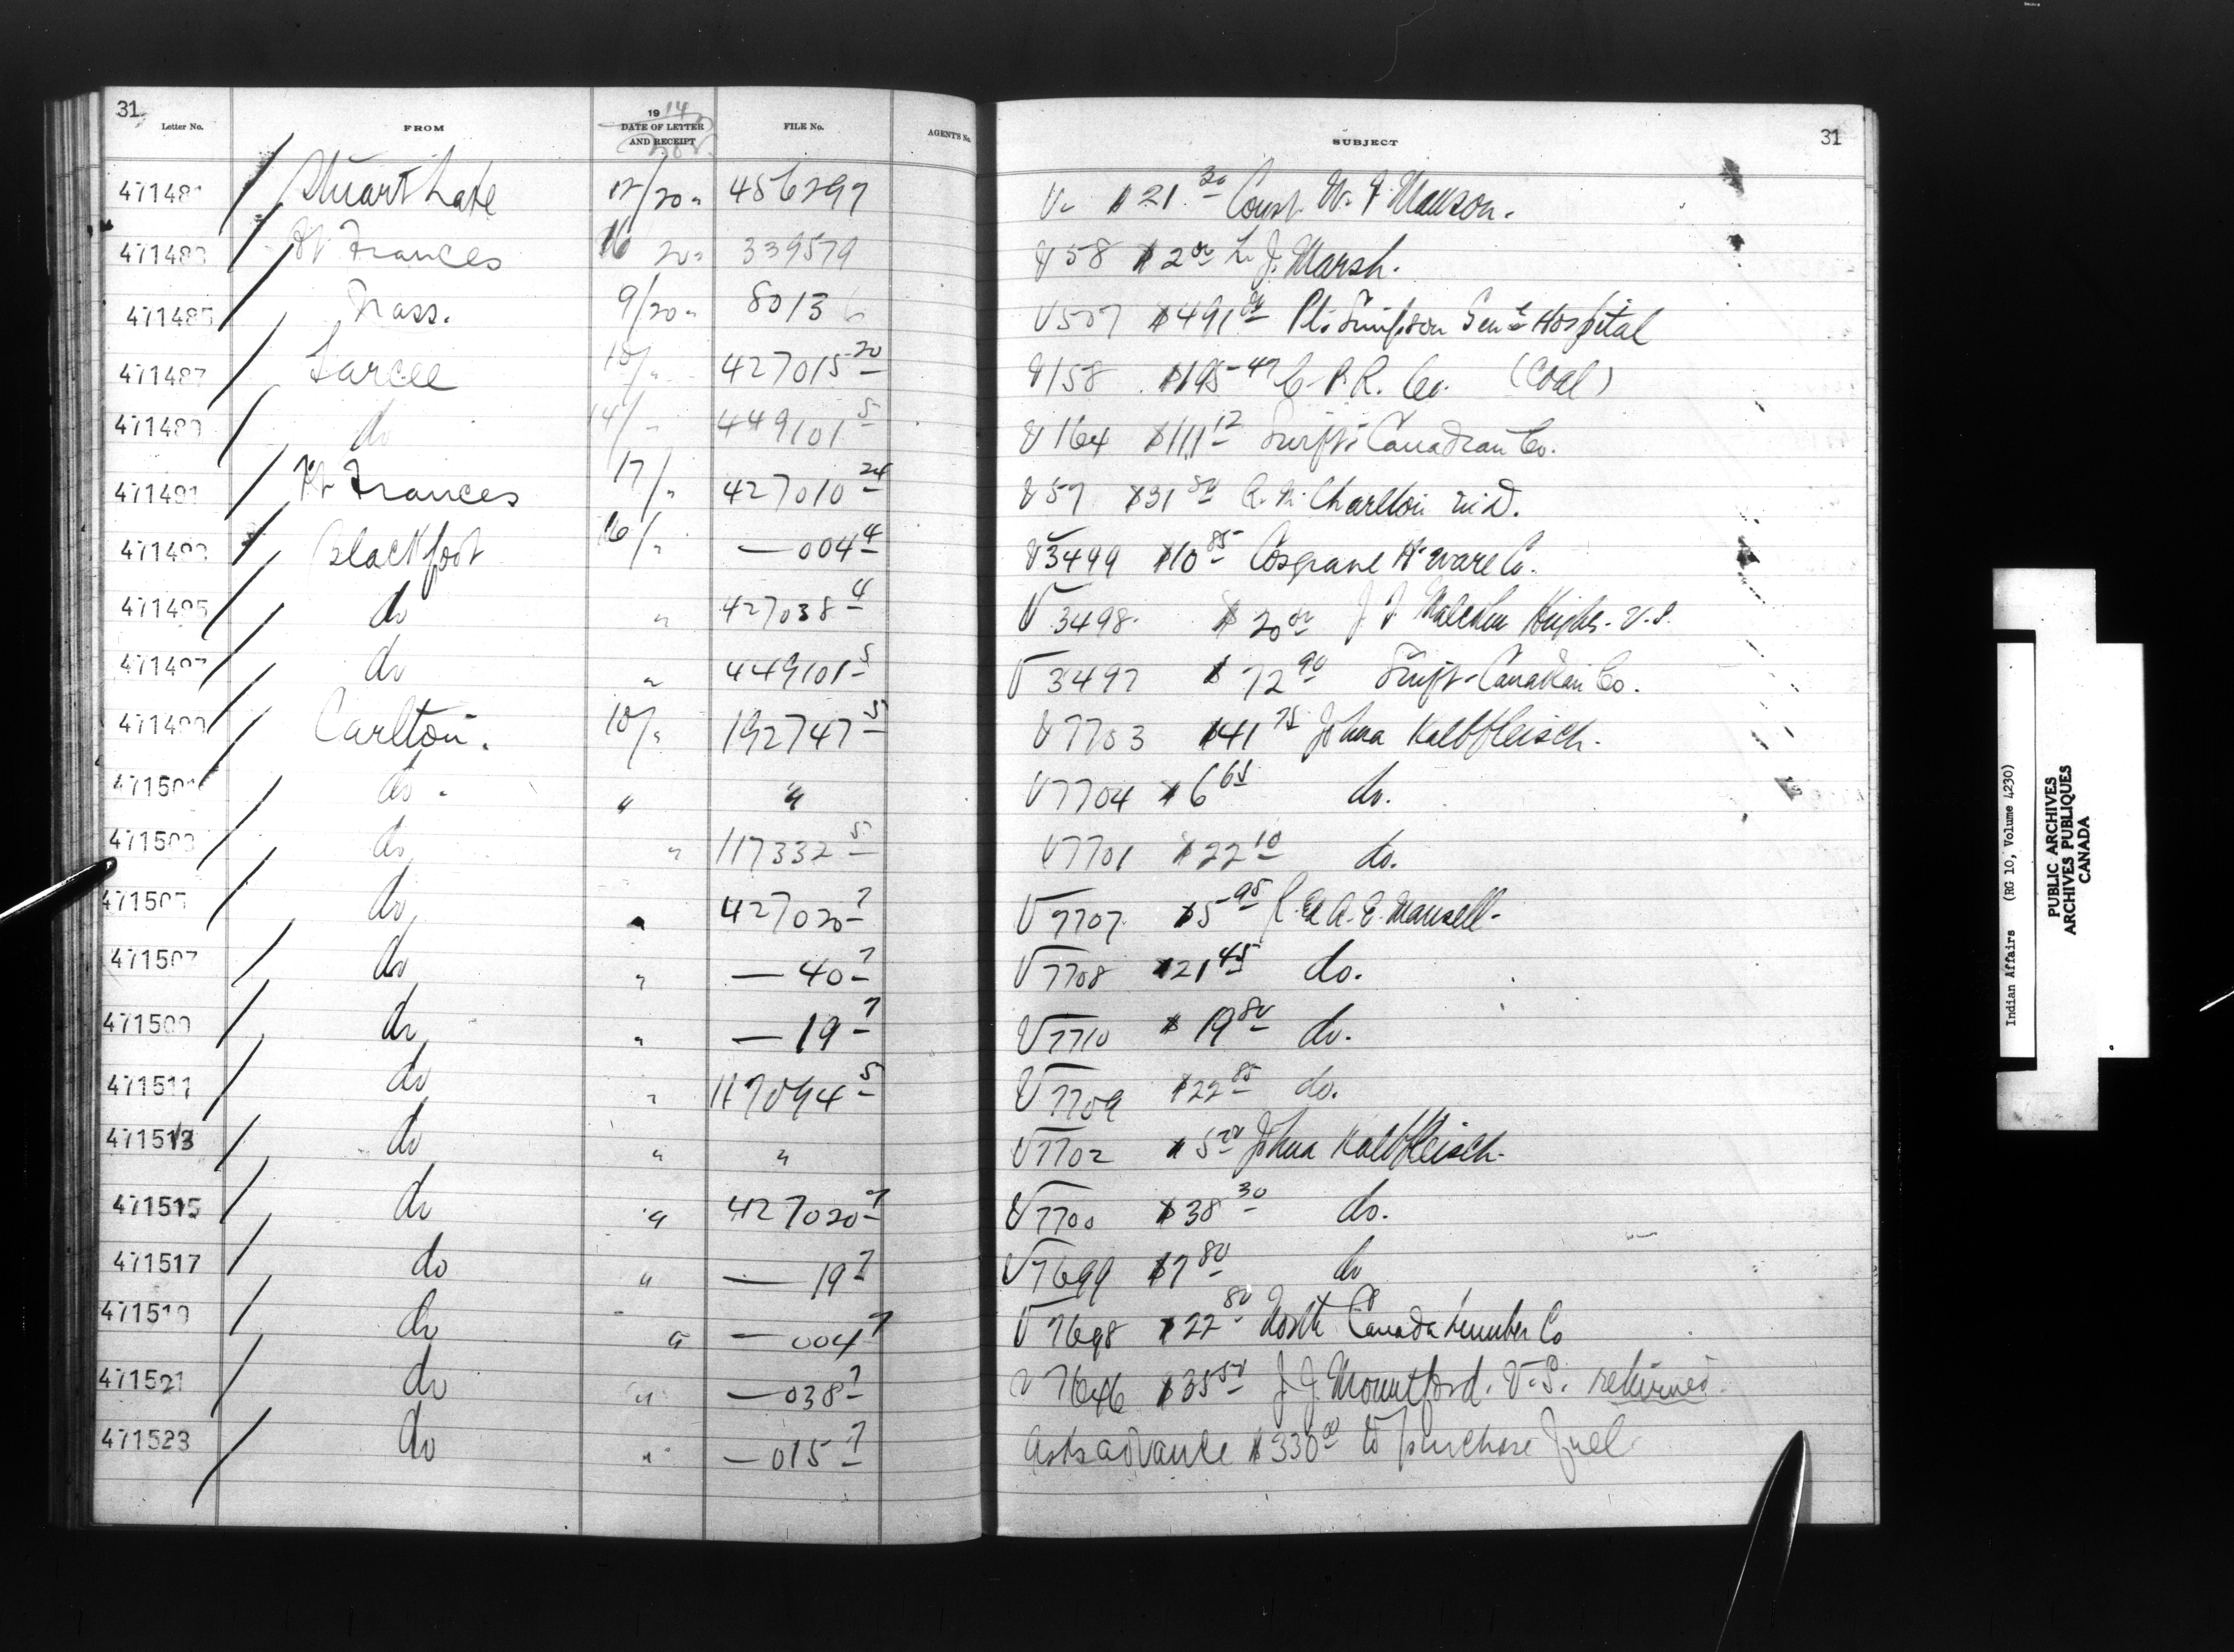 31
Letter No. FROM 1914 DATE OF LETTER AND RECEIPT FILE No. AGENT'S No. SUBJECT 31
471481 Stuart Lake 12/20 " 456297 V. $21.30 Const. W. F. Manson.
471483 Ft Frances 16 20 " 339579 V58 $2.00 L. J. Marsh.
471485 Nass. 9/20 " 80136 V507 $491.00 Pt. Simpson Gen'l Hospital
471487 Sarcee 10/ " 427015-20 V158 $195.47 C. P. R. Co. (Coal)
471489 do 14/ " 449101-5 V164 $111.12 Swift Canadian Co.
471491 Ft Frances 17/ " 427010-24 V57 $31.50 Charlton M.D.
471493 Blackfoot 16/ " — 004-4 V3499 $10.85 Cosgrave H'ware Co.
471495 do " 427038-4 V3498 $20.00 J. J. Malcolm Hughes. V.S.
471497 do " 449101-5 V3497 $72.90 Swift-Canadian Co.
471499 Carlton. 10/ " 192747-5 V7703 $41.75 Johna Kalbfleisch.
471501 do " " V7704 $6.65 do.
471503 do " 117332-5 V7701 $22.10 do.
471505 do " 427020-7 V7707 $5.95 R. & A. E. Mansell-
471507 do " — 40-7 V7708 $21.45 do.
471509 do " — 19-7 V7710 $19.80 do.
471511 do " 117094-5 V7709 $22.85 do.
471513 do " " V7702 $5.00 Johna Kalbfleisch-
471515 do " 427020-7 V7700 $38.30 do.
471517 do " — 19-7 V7699 $7.80 do
471519 do " — 004-7 V7698 $22.80 North Canada Lumber Co
471521 do " — 038-7 V7646 $35.50 J. J. Mountford. V.S. returned.
471523 do " — 015-7 Asks advance $330.00 to purchase fuel
Indian Affairs (RG 10, Volume 4230)
PUBLIC ARCHIVES
ARCHIVES PUBLIQUES
CANADA